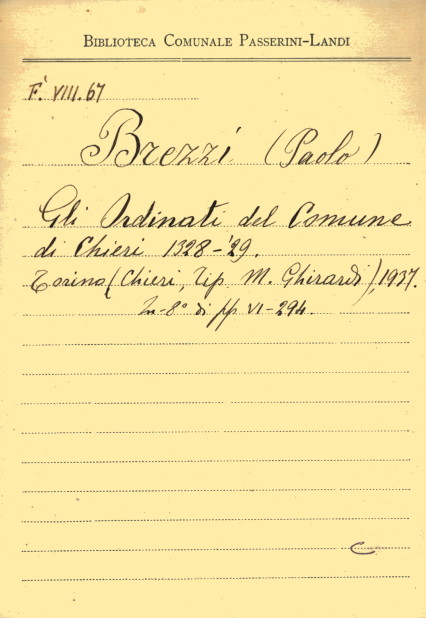 BIBLIOTECA COMUNALE PASSERINI-LANDI
F.` VIII.67
Brezzi (Paolo)
Gli Ordinati del Comune
di Chieri 1328-'29.
Torino (Chieri, Tip. M. Ghirardi), 1937.
In-8° di pp VI-294.
C